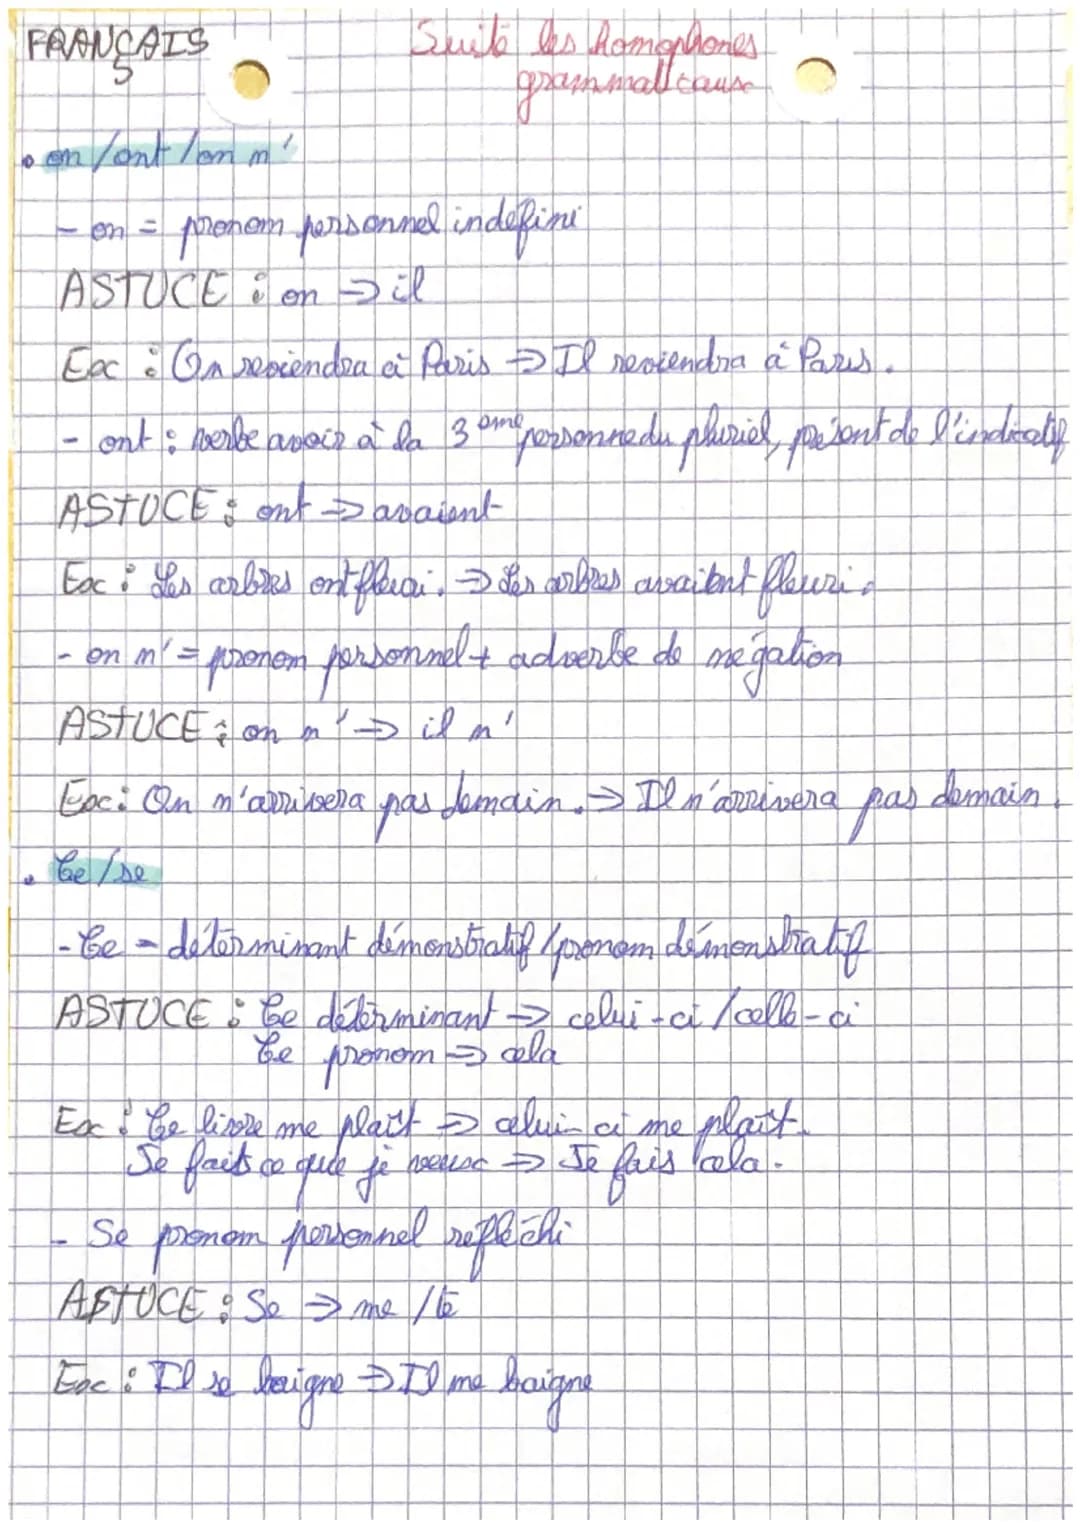 FRANÇAIS
Suite les homophones
grammaticaux
• on/ont/on n'
- on = pronom personnel indéfini
ASTUCE : on → il
Ex : On reviendra à Paris → Il reviendra à Paris.
- ont : verbe avoir à la 3ème personne du pluriel, présent de l'indicatif
ASTUCE : ont → avaient
Ex : Les arbres ont fleuri. → Les arbres avaient fleuri.
- on n' = pronom personnel + adverbe de négation
ASTUCE : on n' → il n'
Ex : On n'arrivera pas demain. → Il n'arrivera pas demain.
• Ce/se
- Ce = déterminant démonstratif/pronom démonstratif
ASTUCE : Ce déterminant → celui-ci/celle-ci
Ce pronom → cela
Ex : Ce livre me plaît → celui-ci me plaît.
Je fais ce que je veux → Je fais cela.
- Se pronom personnel réfléchi
ASTUCE : Se → me/te
Ex : Il se baigne → Il me baigne